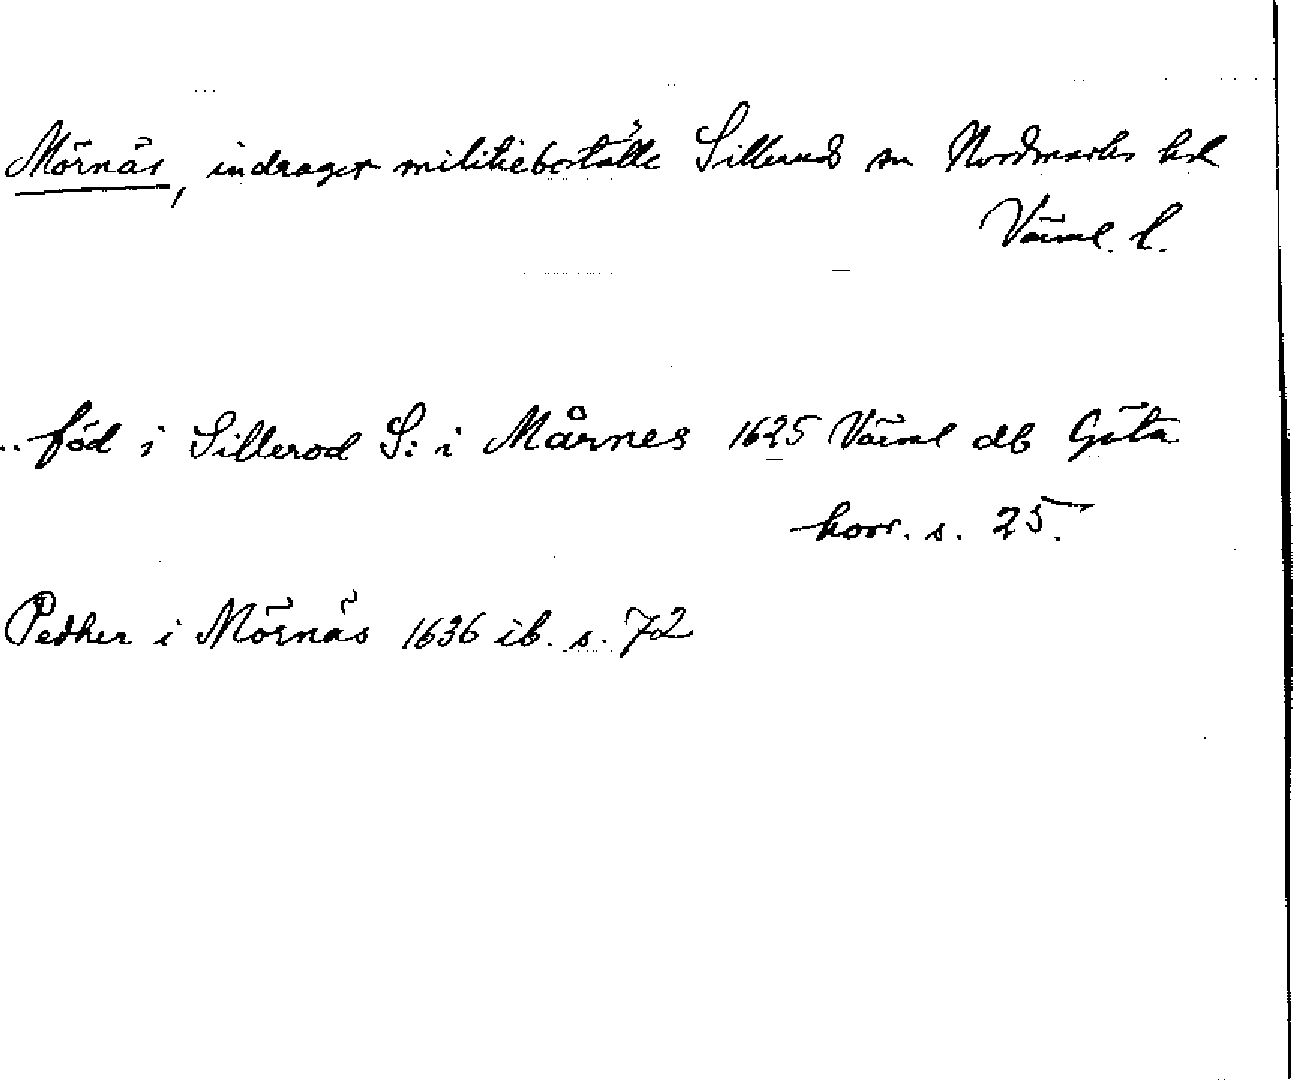 Mörnäs, indraget militieboställe Sillerud sn Nordmarks hd
Värml. l.
.. föd i Sillerod S: i Mårnes 1625 Värml db Göta
horr. s. 25.
Pedher i Mörnäs 1636 ib. s. 72